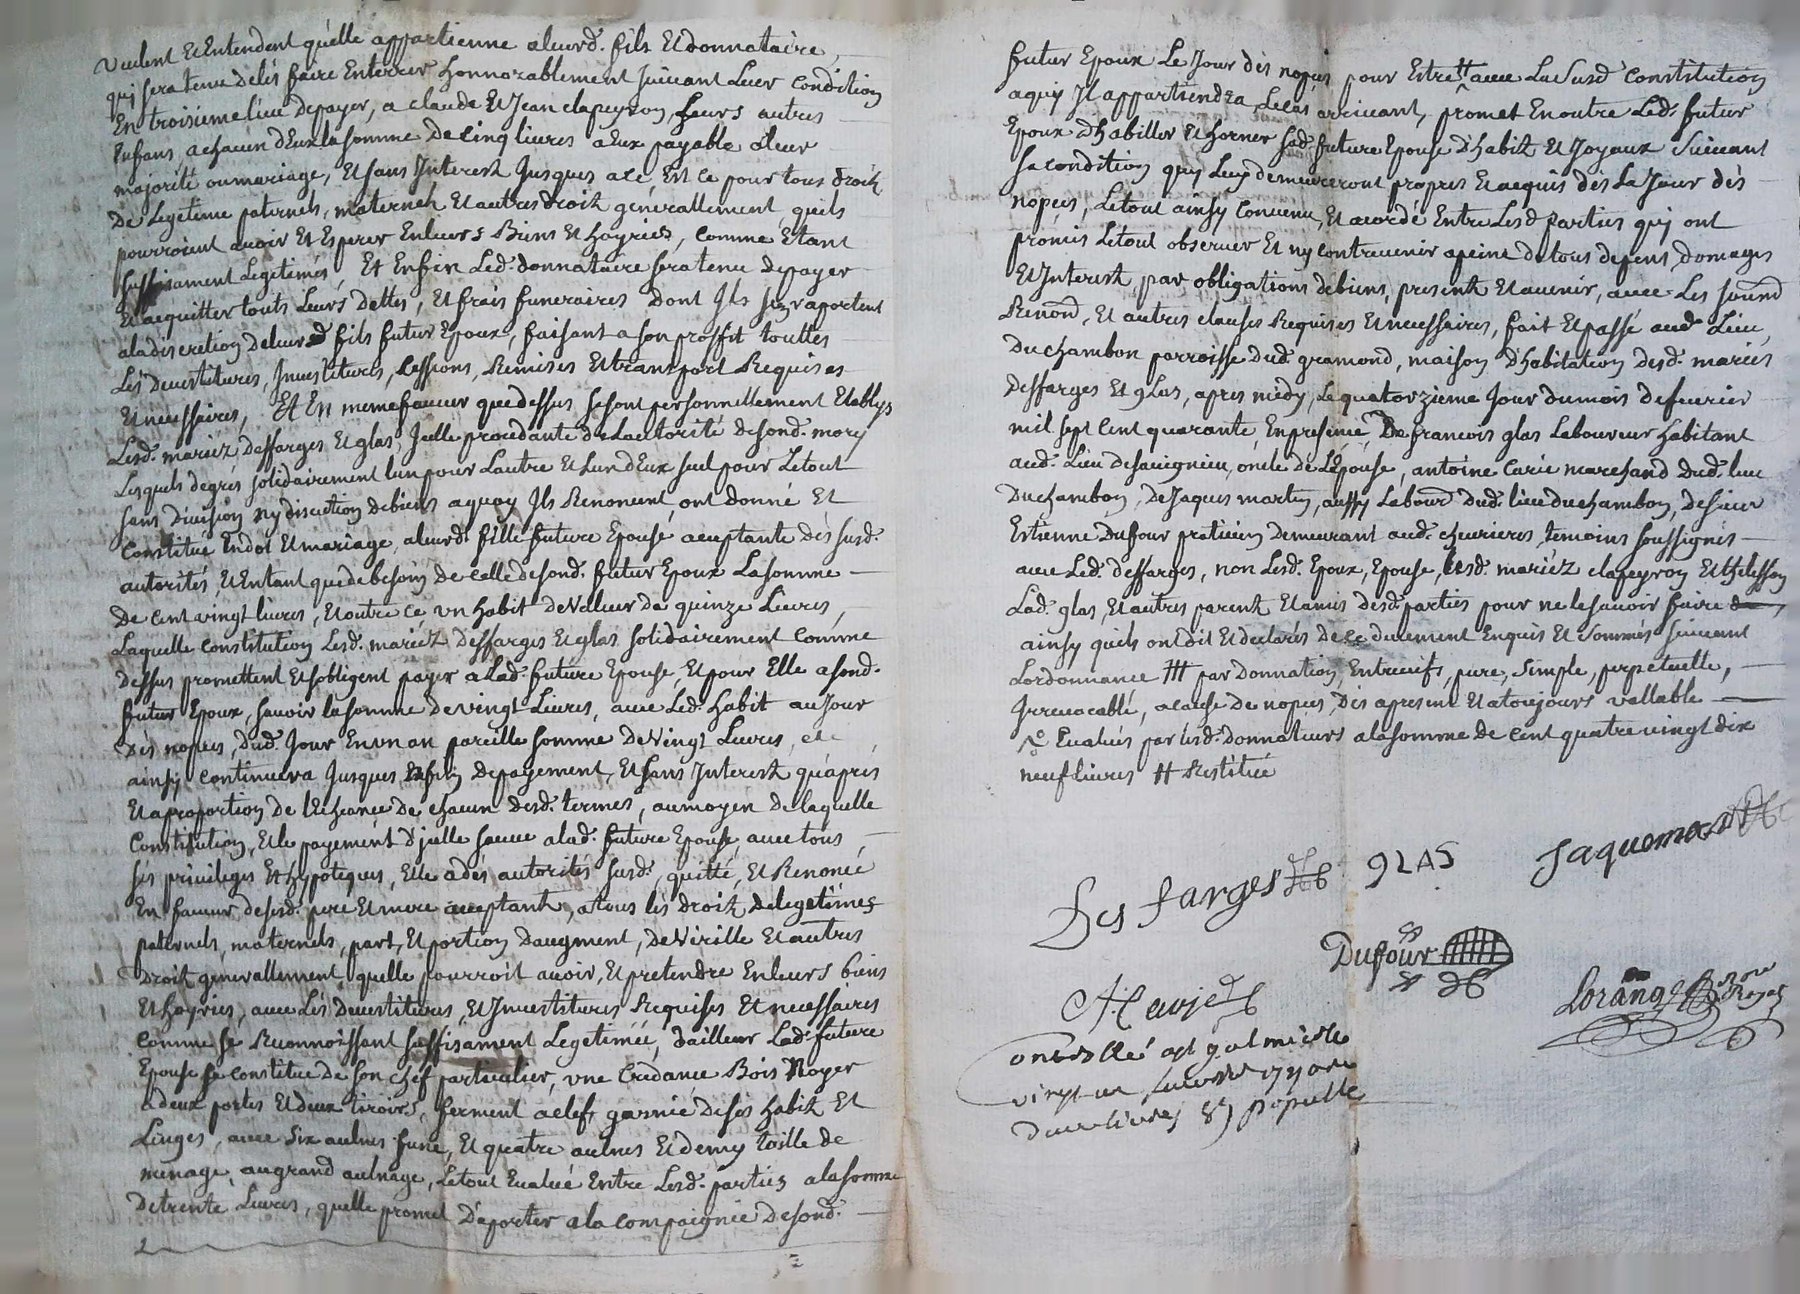 veulent Et Entendent quelle appartienne aleurd. fils Et donnataire,
quj sera tenu delés faire Enterrer honnorablement suivant Leur condition
En troisieme lieu depayer, a claude Et Jean clapeyron, Leurs autres
Enfans, achacun dEux la somme De Cinq livres a Eux payable aleur
majorité oumariage, Et sans Interest Jusques ace, Est ce pour tous droitz
De Legetime paternels, maternels Et autres droitz generallement quils
pourroient avoir Et Esperer Enleurs Biens Et hoyries, comme Etant
suffisament Legetimés, Et Enfin Led. donnataire sera tenu depayer
Et acquitter touts Leurs dettes, Et frais funeraires dont Ils sen raportent
aladiscretion deleurd fils futur Epoux, faisant a son proffit touttes
Les devestitures, Investitures, Cessions, Remises Et transport Requises
Et necessaires, Et En meme faveur que dessus se sont personnellement Etablys
Lesd. mariéz deffarges Et glas, Jcelle procedante de Lautorité desond. mary
Lesquels degrés solidairement lun pour Lautre Et Lun dEux seul pour Letout
sans division ny discution debiens aquoy Ils Renoncent, ont donné Et
Constitué Endot Et mariage, aleurd. fille future Epouse aceptante dés susd.
autorités, Et Entant que de besoin de celle desond. futur Epoux La somme
De cent vingt livres, Et outre ce, vn habit de valleur de quinze Livres,
Laquelle constitution Lesd. mariéz deffarges Et glas solidairement comme
dessus promettent Et sobligent payer a Lad. future Epouse, Et pour Elle asond.
futur Epoux, savoir la somme de vingt Livres, avec Led. habit au Jour
dés nopces, dud. Jour Envn an pareille somme de Vingt Livres, Et
ainsy continuera Jusques Enfin depayement, Et sans Interest quapres
Et aproportion de lEcheance de chacun desd. termes, aumoyen delaquelle
Constitution, Et le payement djcelle sauve alad. future Epouse, avec tous
sés privileges Et hypoteques, Elle adés autorités susd., quitté, Et Renoncé
En faveur desesd. pere Et mere aceptants, atous lés droitz delegetimes
paternels, maternels, part, Et portion daugment, de Virille Et autres
droitz generallement quelle pourroit avoir, Et pretendre Enleurs biens
Et hoyries, avec Lés devestitures, Et Investitures Requises Et necessaires
comme se Reconnoissant suffisament Legetimée, dailleur Lad. future
Epouse se constitue de son chef particulier, vne Credance Bois Noyer
adeux portes Et deux tiroirs, ferment aclef, garnie desés habitz Et
Linges, avec six aulnes sarie, Et quatre aulnes Et demy toille de
menage, augrand aulnage, Letout Evalué Entre Lesd. parties alasomme
detrente Livres, quelle promet dàporter ala compagnie desond.
futur Epoux Le Jour dés nopces pour Estre # avec La Susd Constitution
aquy Il appartiendra Lecas arrivant, promet Enoutre Led. futur
Epoux dhabiller Et horner sad. future Epouse dhabitz Et Joyaux suivant
sa condition quy Luy demeureront propres Et acquis dés La Jour dés
nopces, Letout ainsy Convenu, Et acordé Entre Lesd parties quj ont
promis Letout observer Et ny contrevenir apeine detous depens, domages
Et Interest, par obligations debiens, presentz Et avenir, avec Les soumd
Renond, Et autres clauses Requises Et necessaires, fait Et passé aud. Lieu
Du chambon parroisse dud. gramond, maison dhabitation desd. mariés
deffarges Et glas, apres midy, Le quatorzieme Jour dumois defevrier
mil sept Cent quarante, En presence, De francois glas Laboureur habitant
aud. Lieu desavignieu, oncle de LEpouse, antoine Carie marchand dud. lieu
Duchambon, De Jaques martin, aussy Labourd dud. lieu duchambon, desieur
Estienne Duffour praticien demeurant aud. chevrieres, temoins soussignés
avec Led. deffarges, non Lesd. Epoux, Epouse, Lesd. mariéz clapeyron Et thelisson
Lad. glas, Et autres parent Et amis desd. parties pour ne le savoir faire
ainsy quils ont dit Et declarés de ce duement Enquis Et sommés suivant
Lordonnance ### par Donnation, Entrevifs, pure, Simple, perpetuelle,
Jrrevocable, acause de nopces, Dés apresent Et atoujours vallable
Evalués par lesd. Donnateurs alasomme de Cent quatre vingt dix
neuf livres # Restitué
Des farges
gLAS
Jaquemart
Duffour
Lorange